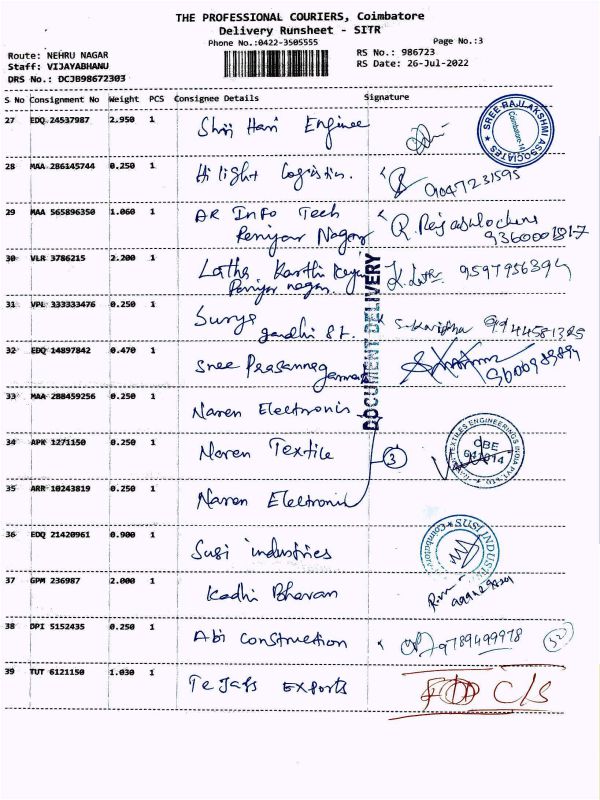 THE PROFESSIONAL COURIERS, Coimbatore
Delivery Runsheet - SITR
Phone No.:0422-3505555
Page No.:3
Route: NEHRU NAGAR
RS No.: 986723
Staff: VIJAYABHANU
RS Date: 26-Jul-2022
DRS No.: DCJB98672303
S No Consignment No Weight PCS Consignee Details Signature
27 EDQ 24537987 2.950 1 Shri Hari Enginee
SREE RAJLAKSHMI ASSOCIATES Coimbatore-14
28 MAA 286145744 0.250 1 Hi light Logistics. 9047231595
29 MAA 565896350 1.060 1 AR Info Tech
Periyar Nagar
30 VLR 3786215 2.200 1 Latha Karthikeya
Periyar nagar. 9597956394
31 VPL 333333476 0.250 1 Surya
gandhi St. 9944581385
32 EDQ 14897842 0.470 1 Sree Prasanna
33 MAA 288459256 0.250 1 Naren Electronic
DOCUMENT DELIVERY
34 APK 1271150 0.250 1 Naren Textile
3
TEXTILES ENGINEERINGS INDIA PVT. LTD. CBE 641014
35 ARR 10243819 0.250 1 Naren Electronic
36 EDQ 21420961 0.900 1 Susi industries
SUSI INDUSTRIES Coimbatore
37 GPM 236987 2.000 1 Kadhi Bhavan
38 DPI 5152435 0.250 1 Abi Construction 9789499978
39 TUT 6121150 1.030 1 Tejas Exports C/S